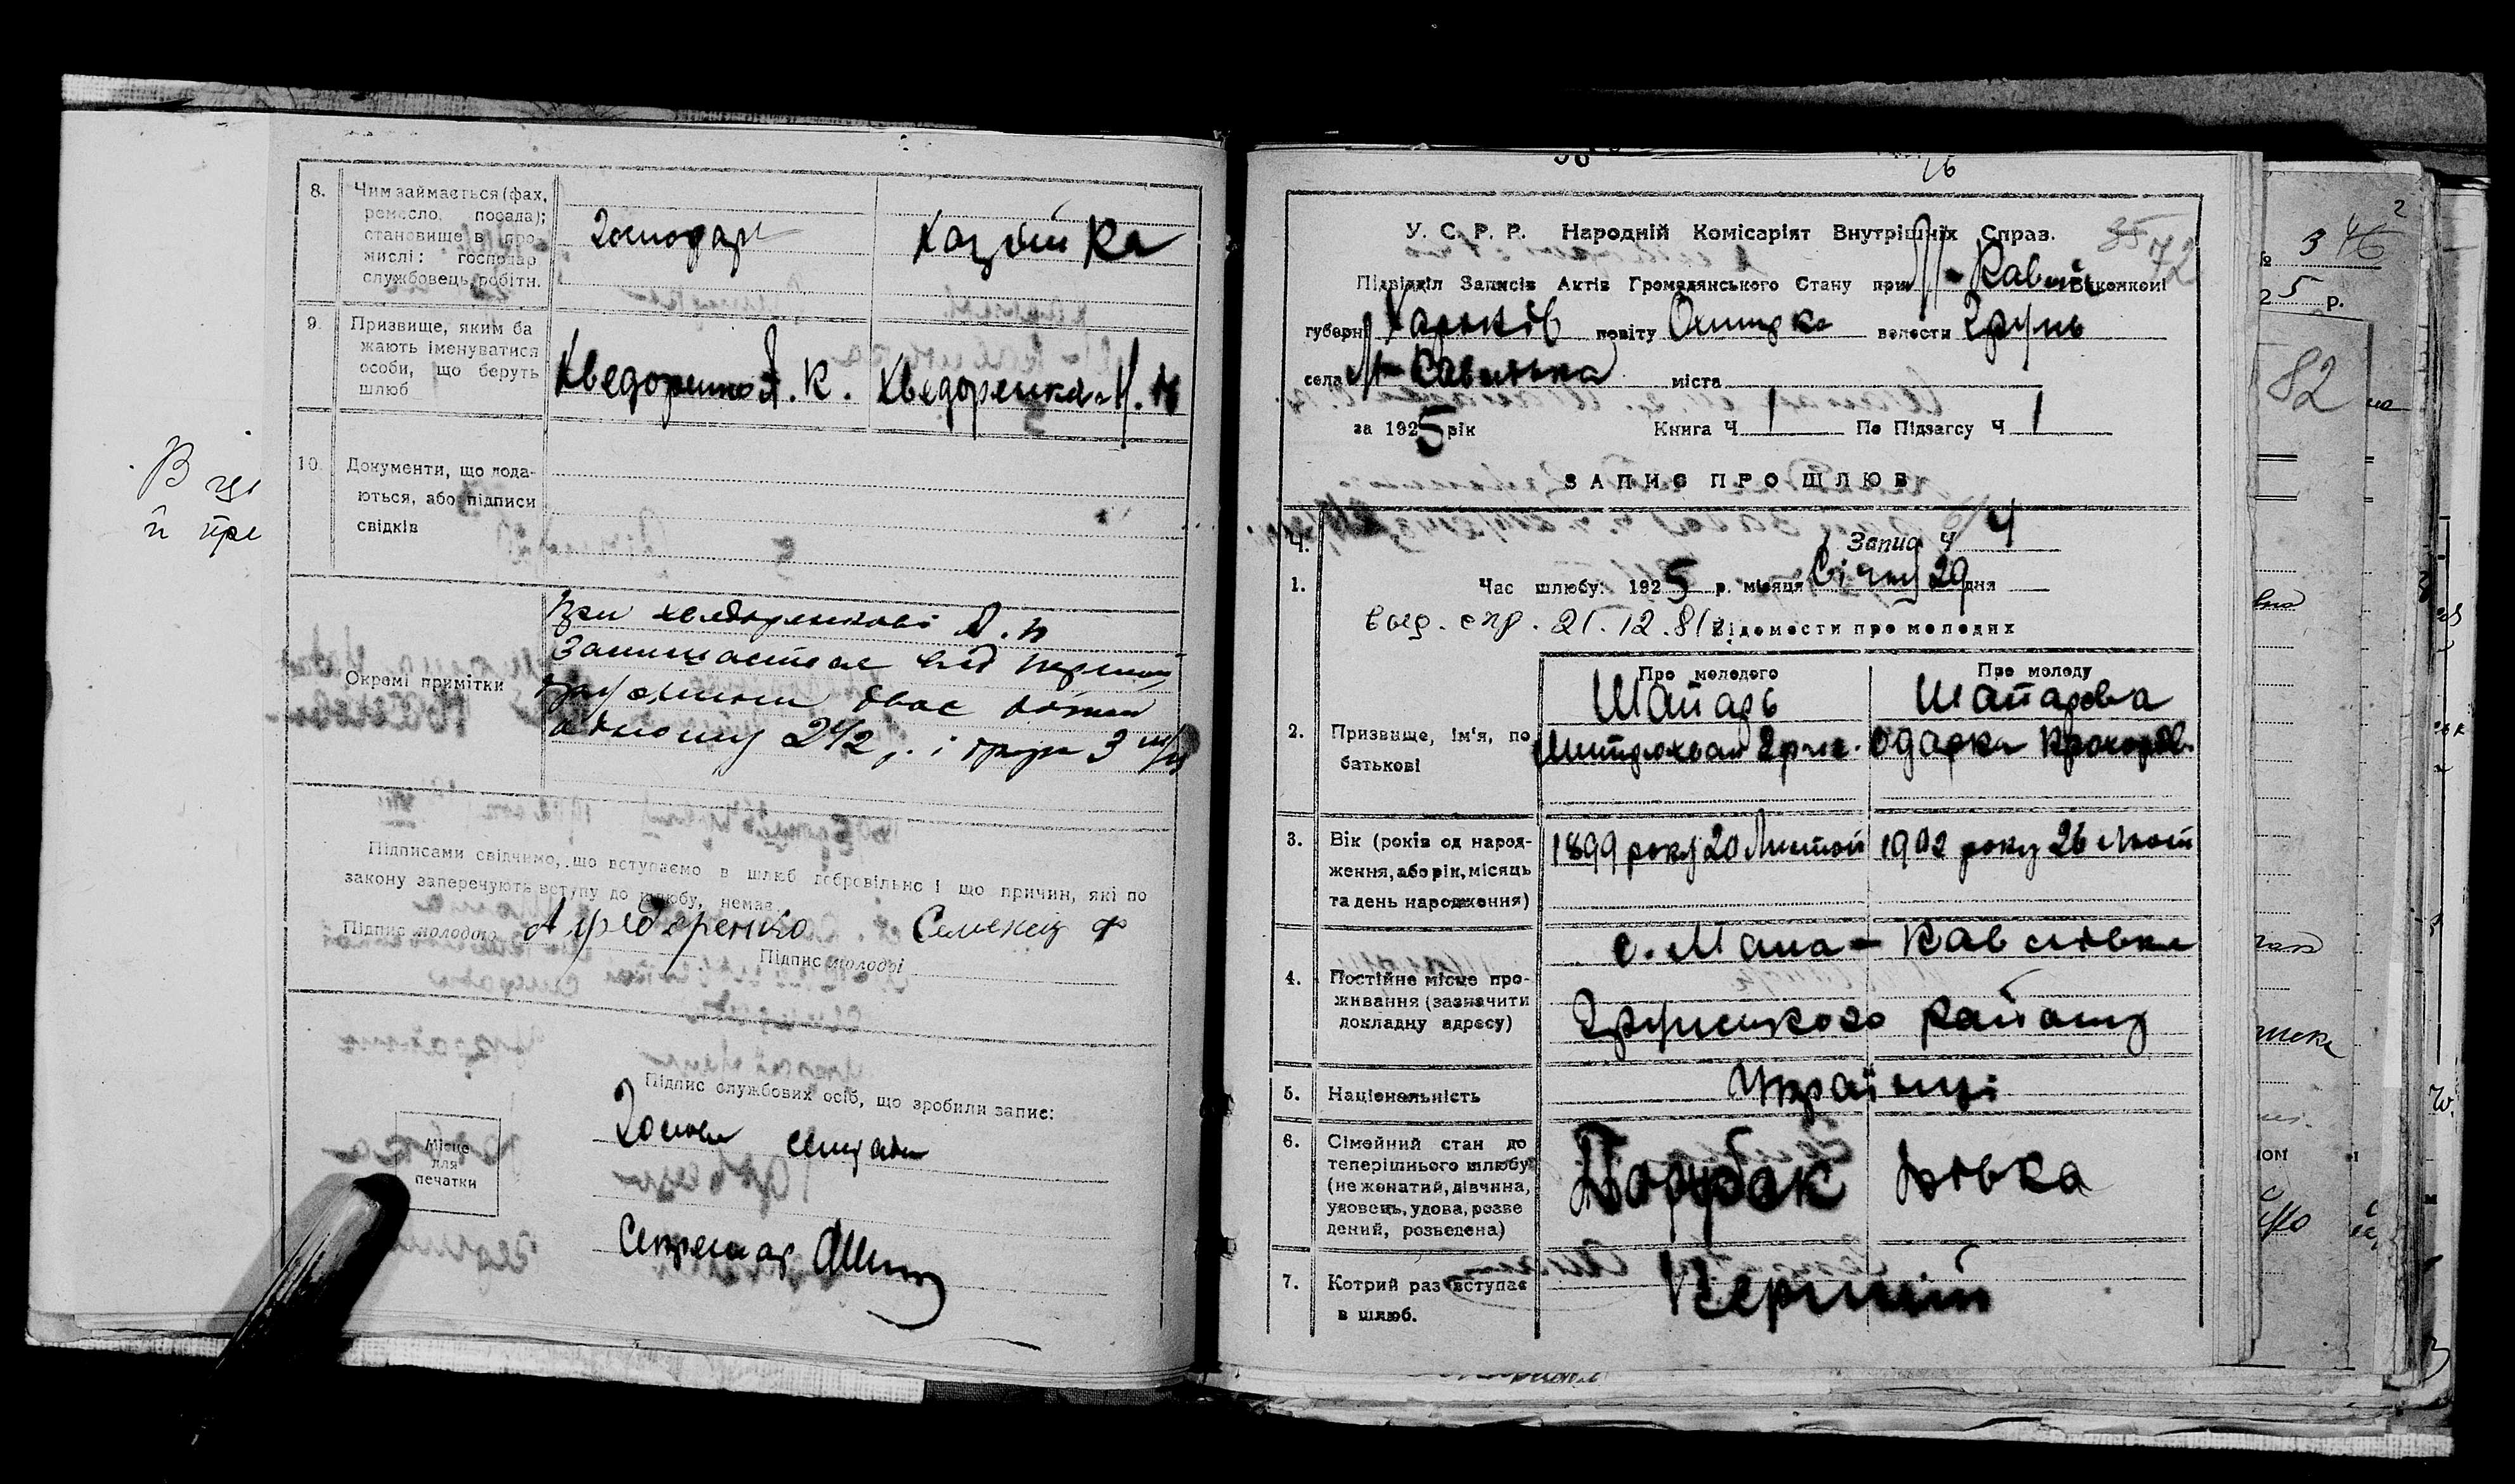 8.
Чим займається (фах,
ремесло, посада);
становище в про-
мислі: господар
службовець, робітн.
Господарь
Хазяйка
9.
Призвище, яким ба
жають іменуватися
особи, що беруть
шлюб
Хведоренко А. К.
Хведоренкова Н.
10.
Документи, що пода-
ються, або підписи
свідків
В
й пре
Окремі примітки
При Хведоренкові А. К
Залишається від першої
двоє дітей
одному 2 1/2 р. і друге 3
Підписами свідчимо, що вступаємо в шлюб добровільно і що причин, які по
закону заперечують вступу до шлюбу, немає.
Підпис молодого
А Федоренко
Підпис молодої
Семенец Ф
Підпис службових осіб, що зробили запис:
Місце
для
печатки
Голова сельради
Секретар
16
У. С. Р. Р. Народній Комісаріят Внутрішніх Справ.
35
72
Підвідділ Записів Актів Громадянського Стану при М-Павлів Виконкомі
губерні Харьків повіту Охтирка волости Грунь
села М-Павлівка міста
за 1925 рік Книга Ч. 1 По Підзагсу Ч 1
ЗАПИС ПРО ШЛЮБ
Ч.
Запис Ч 4
1.
Час шлюбу: 1925 р. місяця Січня 29 дня
выд. спр. 21.12.81г.
Відомости про молодих
Про молодого
Про молоду
2.
Призвище, ім'я, по
батькові
Шапарь
Митрохван
Шапарева
Одарка Прохоров.
3.
Вік (років од народ-
ження, або рік, місяць
та день народження)
1899 року 20
1902 року 26 Лют
4.
Постійне місце про-
живання (зазначити
докладну адресу)
с. Мала-Павлівка
Грунського району
5.
Національність
Українці
6.
Сімейний стан до
теперішнього шлюбу
(не жонатий, дівчина,
удовець, удова, розве
дений, розведена)
Парубок
Дівка
7.
Котрий раз вступає
в шлюб.
Перший
3 46
2 5 р.
82